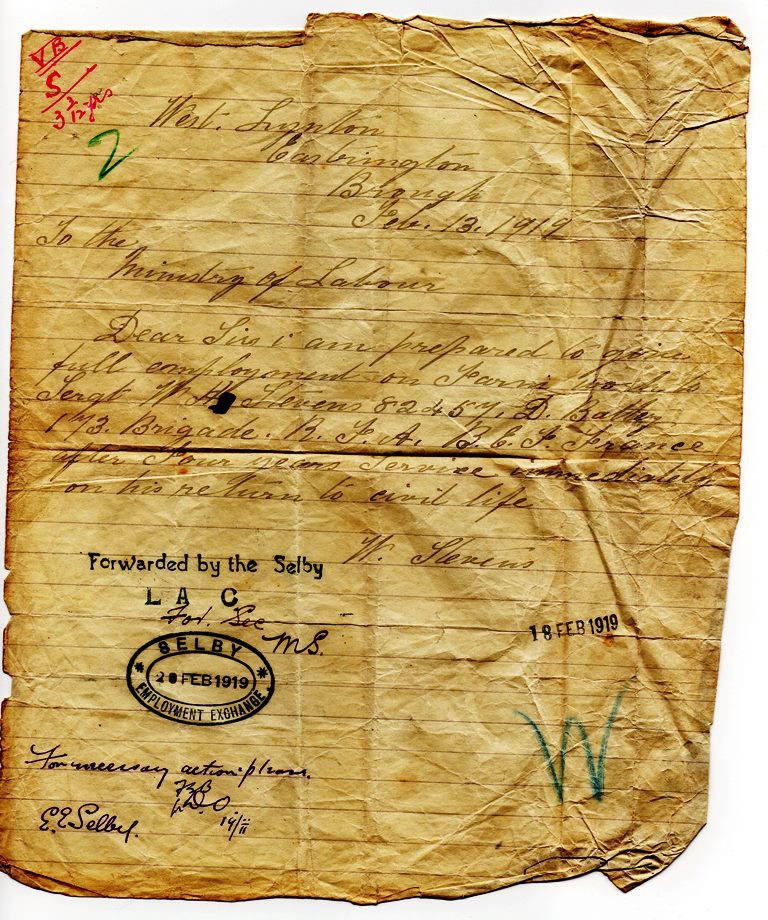 V B
S
3 2/12 yrs
2
West. Lynton
Eastrington
Brough
Feb. 13. 1919
To the
Ministry of Labour
Dear Sirs i am prepared to give
full employment on Farm work to
Sergt W H Stevens 82457. D. Battry
173. Brigade. R. F. A. B. E. F. France
after Four years Service immediately
on his return to civil life
W. Stevens
Forwarded by the Selby
L A C
For. Sec
MS.
18 FEB 1919
SELBY
28 FEB 1919
EMPLOYMENT EXCHANGE
W
For necessary action please.
D.O.
19/11
E.E Selby.